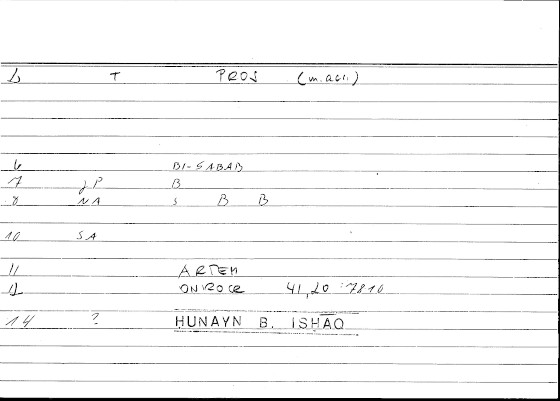 T PROS (m.acc.)
6 BI-SABAB
7 JP B
8 NA S B B
10 SA
11 ARTEM
12 ONIROCR 41,20 : 78 10
14 ? HUNAYN B. ISHĀQ